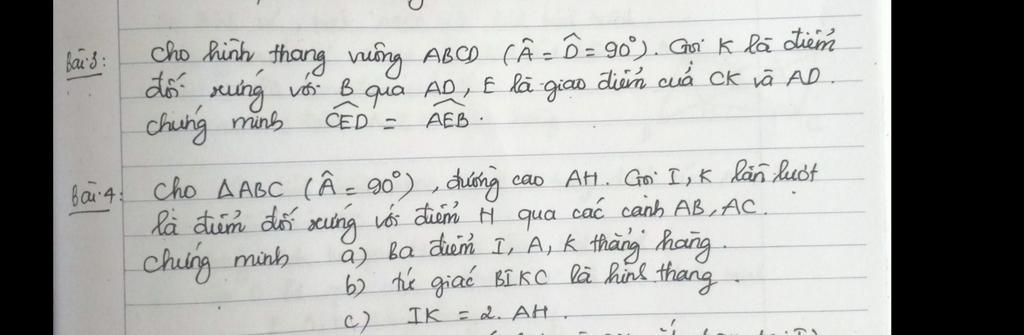 Bài 3: Cho hình thang vuông ABCD (Â = D̂ = 90°). Gọi K là điểm
đối xứng với B qua AD, E là giao điểm của CK và AD.
chứng minh \widehat{CED} = \widehat{AEB}.
Bài 4: Cho ΔABC (Â = 90°), đường cao AH. Gọi I, K lần lượt
là điểm đối xứng với điểm H qua các cạnh AB, AC.
chứng minh a) Ba điểm I, A, K thẳng hàng.
b) tứ giác BIKC là hình thang.
c) IK = 2. AH.